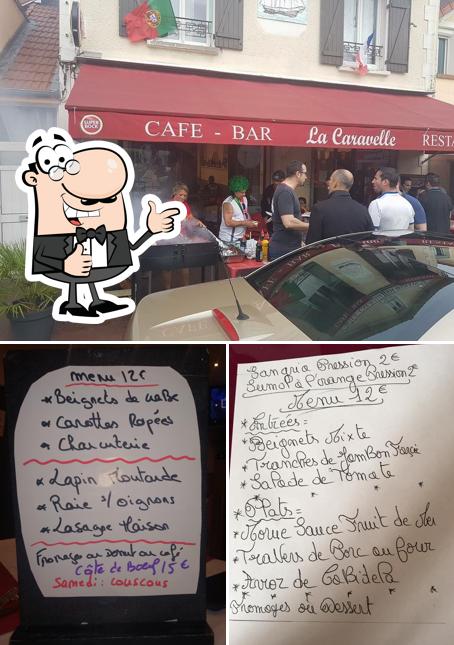 SUPER BOCK
CAFE - BAR La Caravelle RESTA
menu 12€
* Beignets de crabe
* Carottes Rapées
* Charcuterie
* Lapin Moutarde
* Raie s/ oignons
* Lasagne Maison
Fromages ou Dessert ou café
Côte de Boeuf 15 €
Samedi : couscous
Sangria Pression 2€
Sumol à l'orange Pression 2€
Menu 12€
* Entrées =
* Beignets Mixte
* Tranches de JamBon
* Salade de Tomate
* Plats =
* Morue Sauce Fruit de Mer
* Travers de Porc au four
* Arroz de CaBidela
Fromages ou Dessert